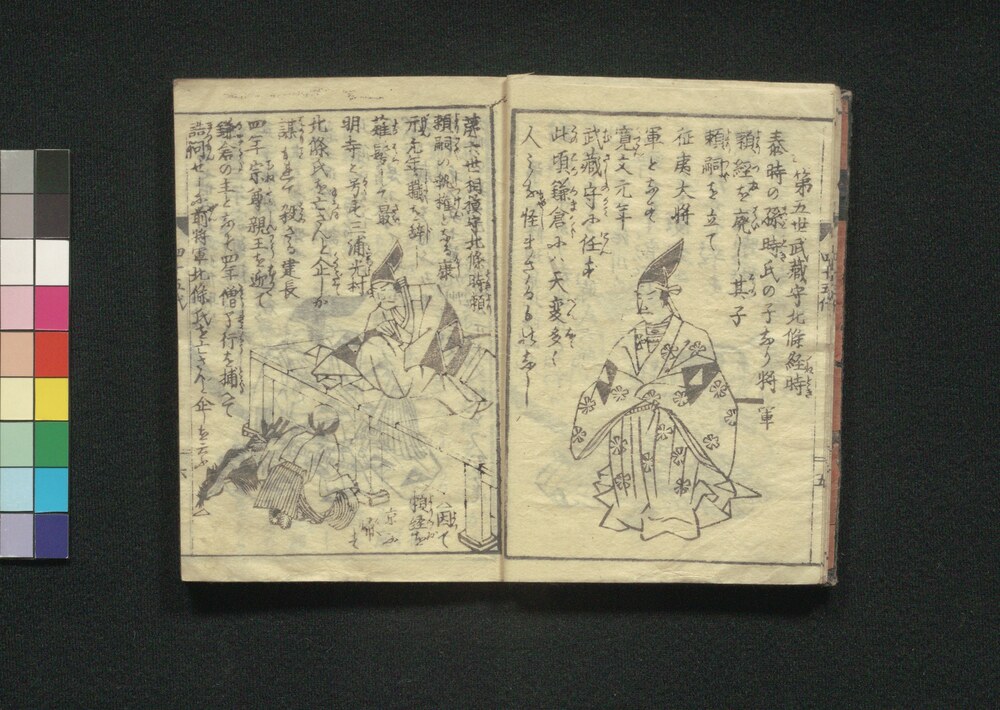 第五世武藏守北條経時
泰時の孫時氏の子なり将軍
頼経を廃し其子
頼嗣を立て
征夷大将
軍となす
寛文元年
武藏守に任ず
此頃鎌倉にハ天変多く
人みな怪まざるハなし
第六世相模守北條時頼
頼嗣の執権となる康
元元年職を辞し
薙髪して最
明寺と号す三浦光村
北條氏を亡さんと企しが
謀をもて殺さる建長
四年宗尊親王を迎て
鎌倉の主となす四年僧了行を捕へて
詰問せしに前将軍北條氏を亡さんと企
因て
頼経を